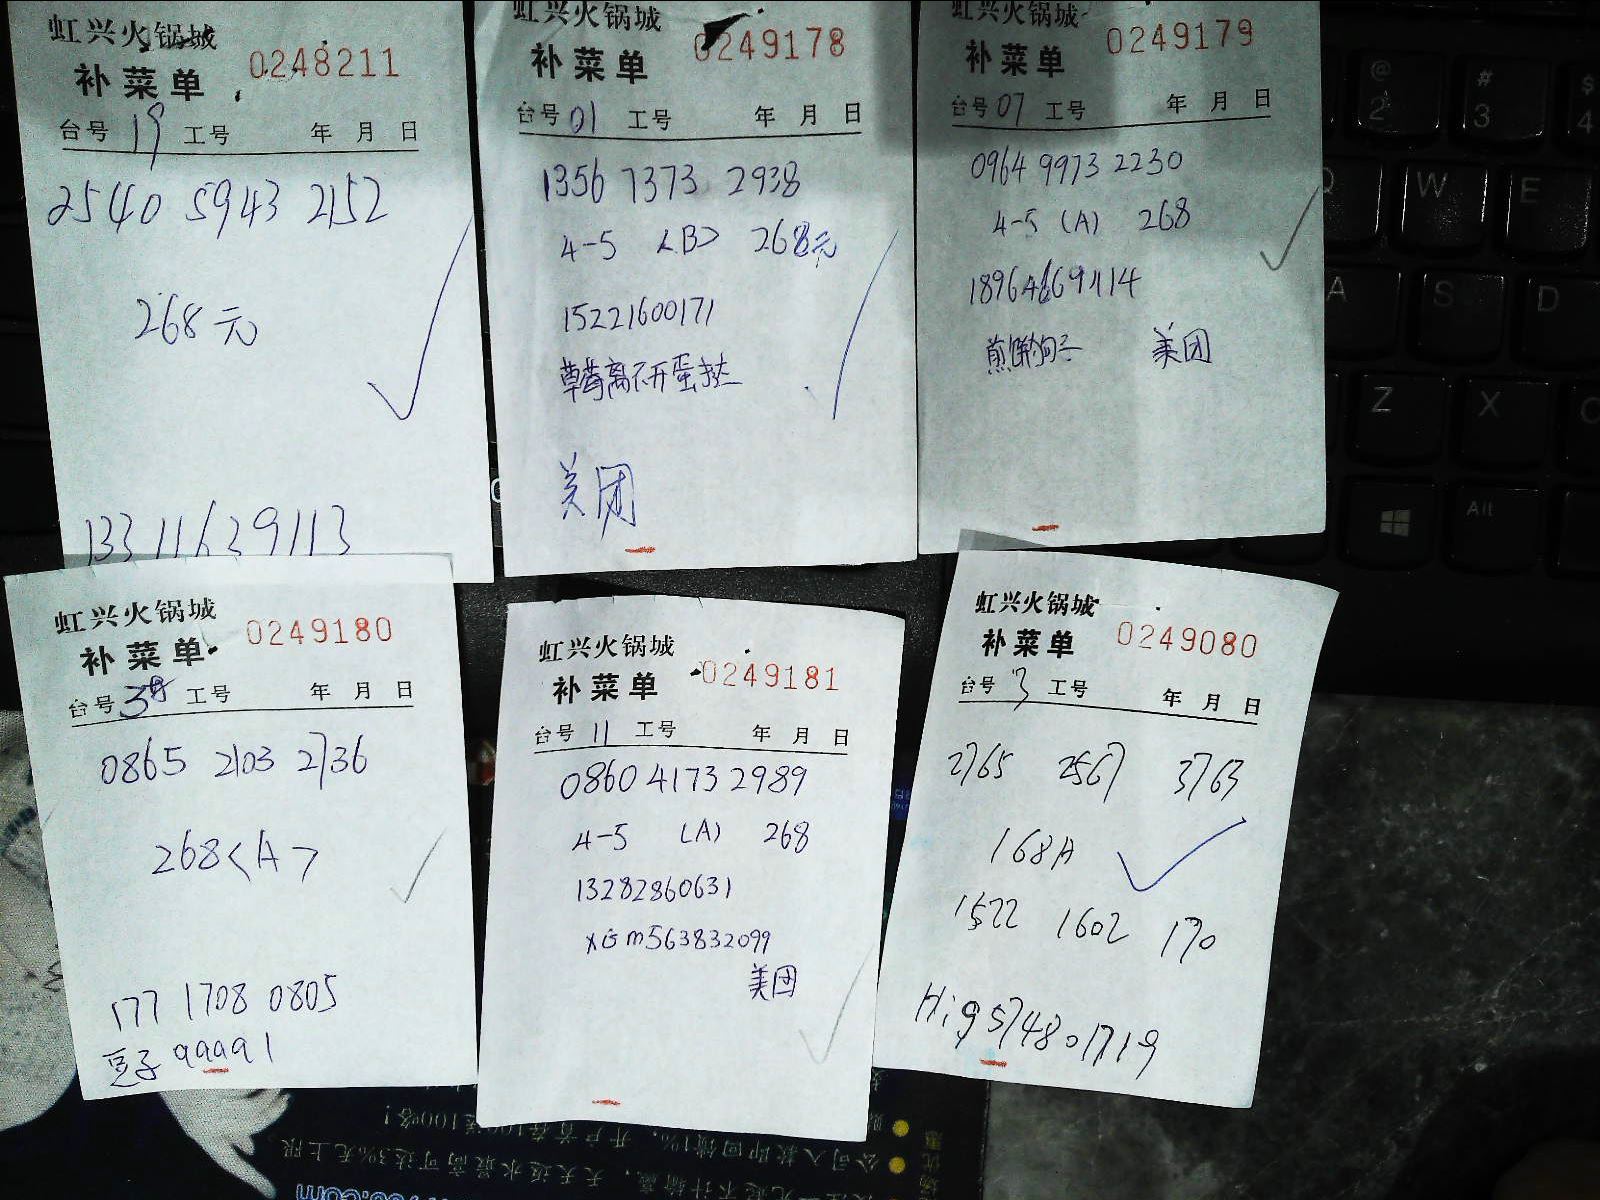 虹兴火锅城
补菜单 0248211
台号 19 工号 年 月 日
2540 5943 2152
268元
13311639113
虹兴火锅城
补菜单 0249178
台号 01 工号 年 月 日
1356 7373 2938
4-5 <B> 268元
15221600171
草莓离不开蛋挞
美团
虹兴火锅城
补菜单 0249179
台号 07 工号 年 月 日
0964 9973 2230
4-5 (A) 268
美团
虹兴火锅城
补菜单 0249180
台号 工号 年 月 日
0865 2103 2736
268<A>
177 1708 0805
豆子99991
虹兴火锅城
补菜单 0249181
台号 11 工号 年 月 日
0860 4173 2989
4-5 (A) 268
13282860631
xGm563832099
美团
虹兴火锅城
补菜单 0249080
台号 3 工号 年 月 日
2765 2567 3763
168A
1522 1602 170
Hig574801719
@
2
#
3
$
4
W
E
A
S
D
Z
X
C
Alt
开户首存100送100啦！
公司入款即回馈1%，
天天返水最高可达3%无上限